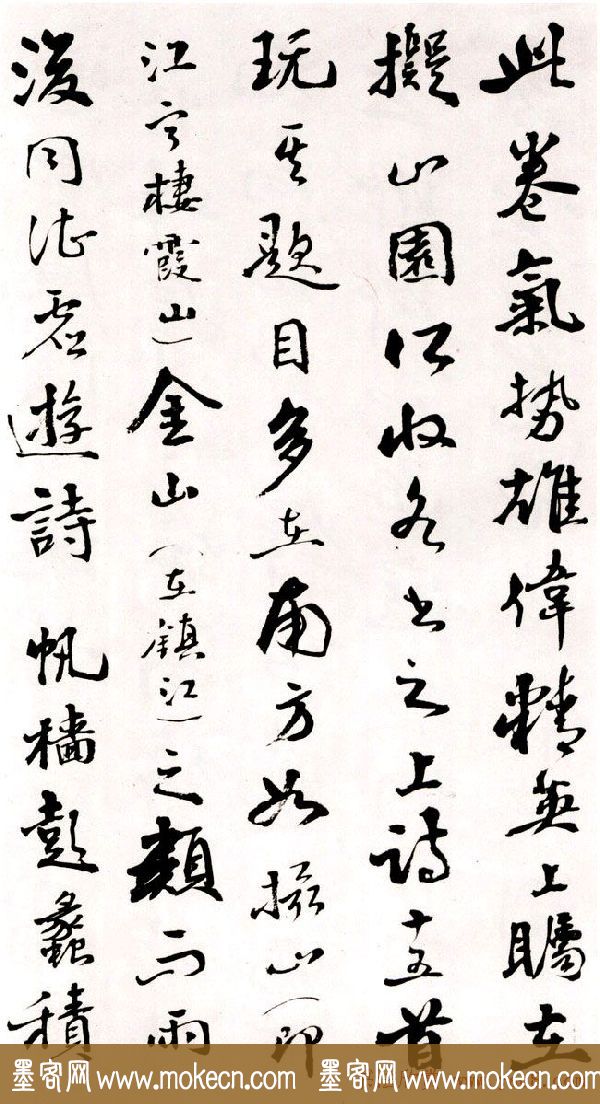 此卷氣勢雄偉精英上矚在
擬山園所收各書之上詩十五首
玩其題目多在南方如攝山(即
江寧棲霞山)金山(在鎮江)之類而雨
後同遊詩 帆檣彭蠡積
墨客网 www.mokecn.com 墨客网 www.mokecn.com